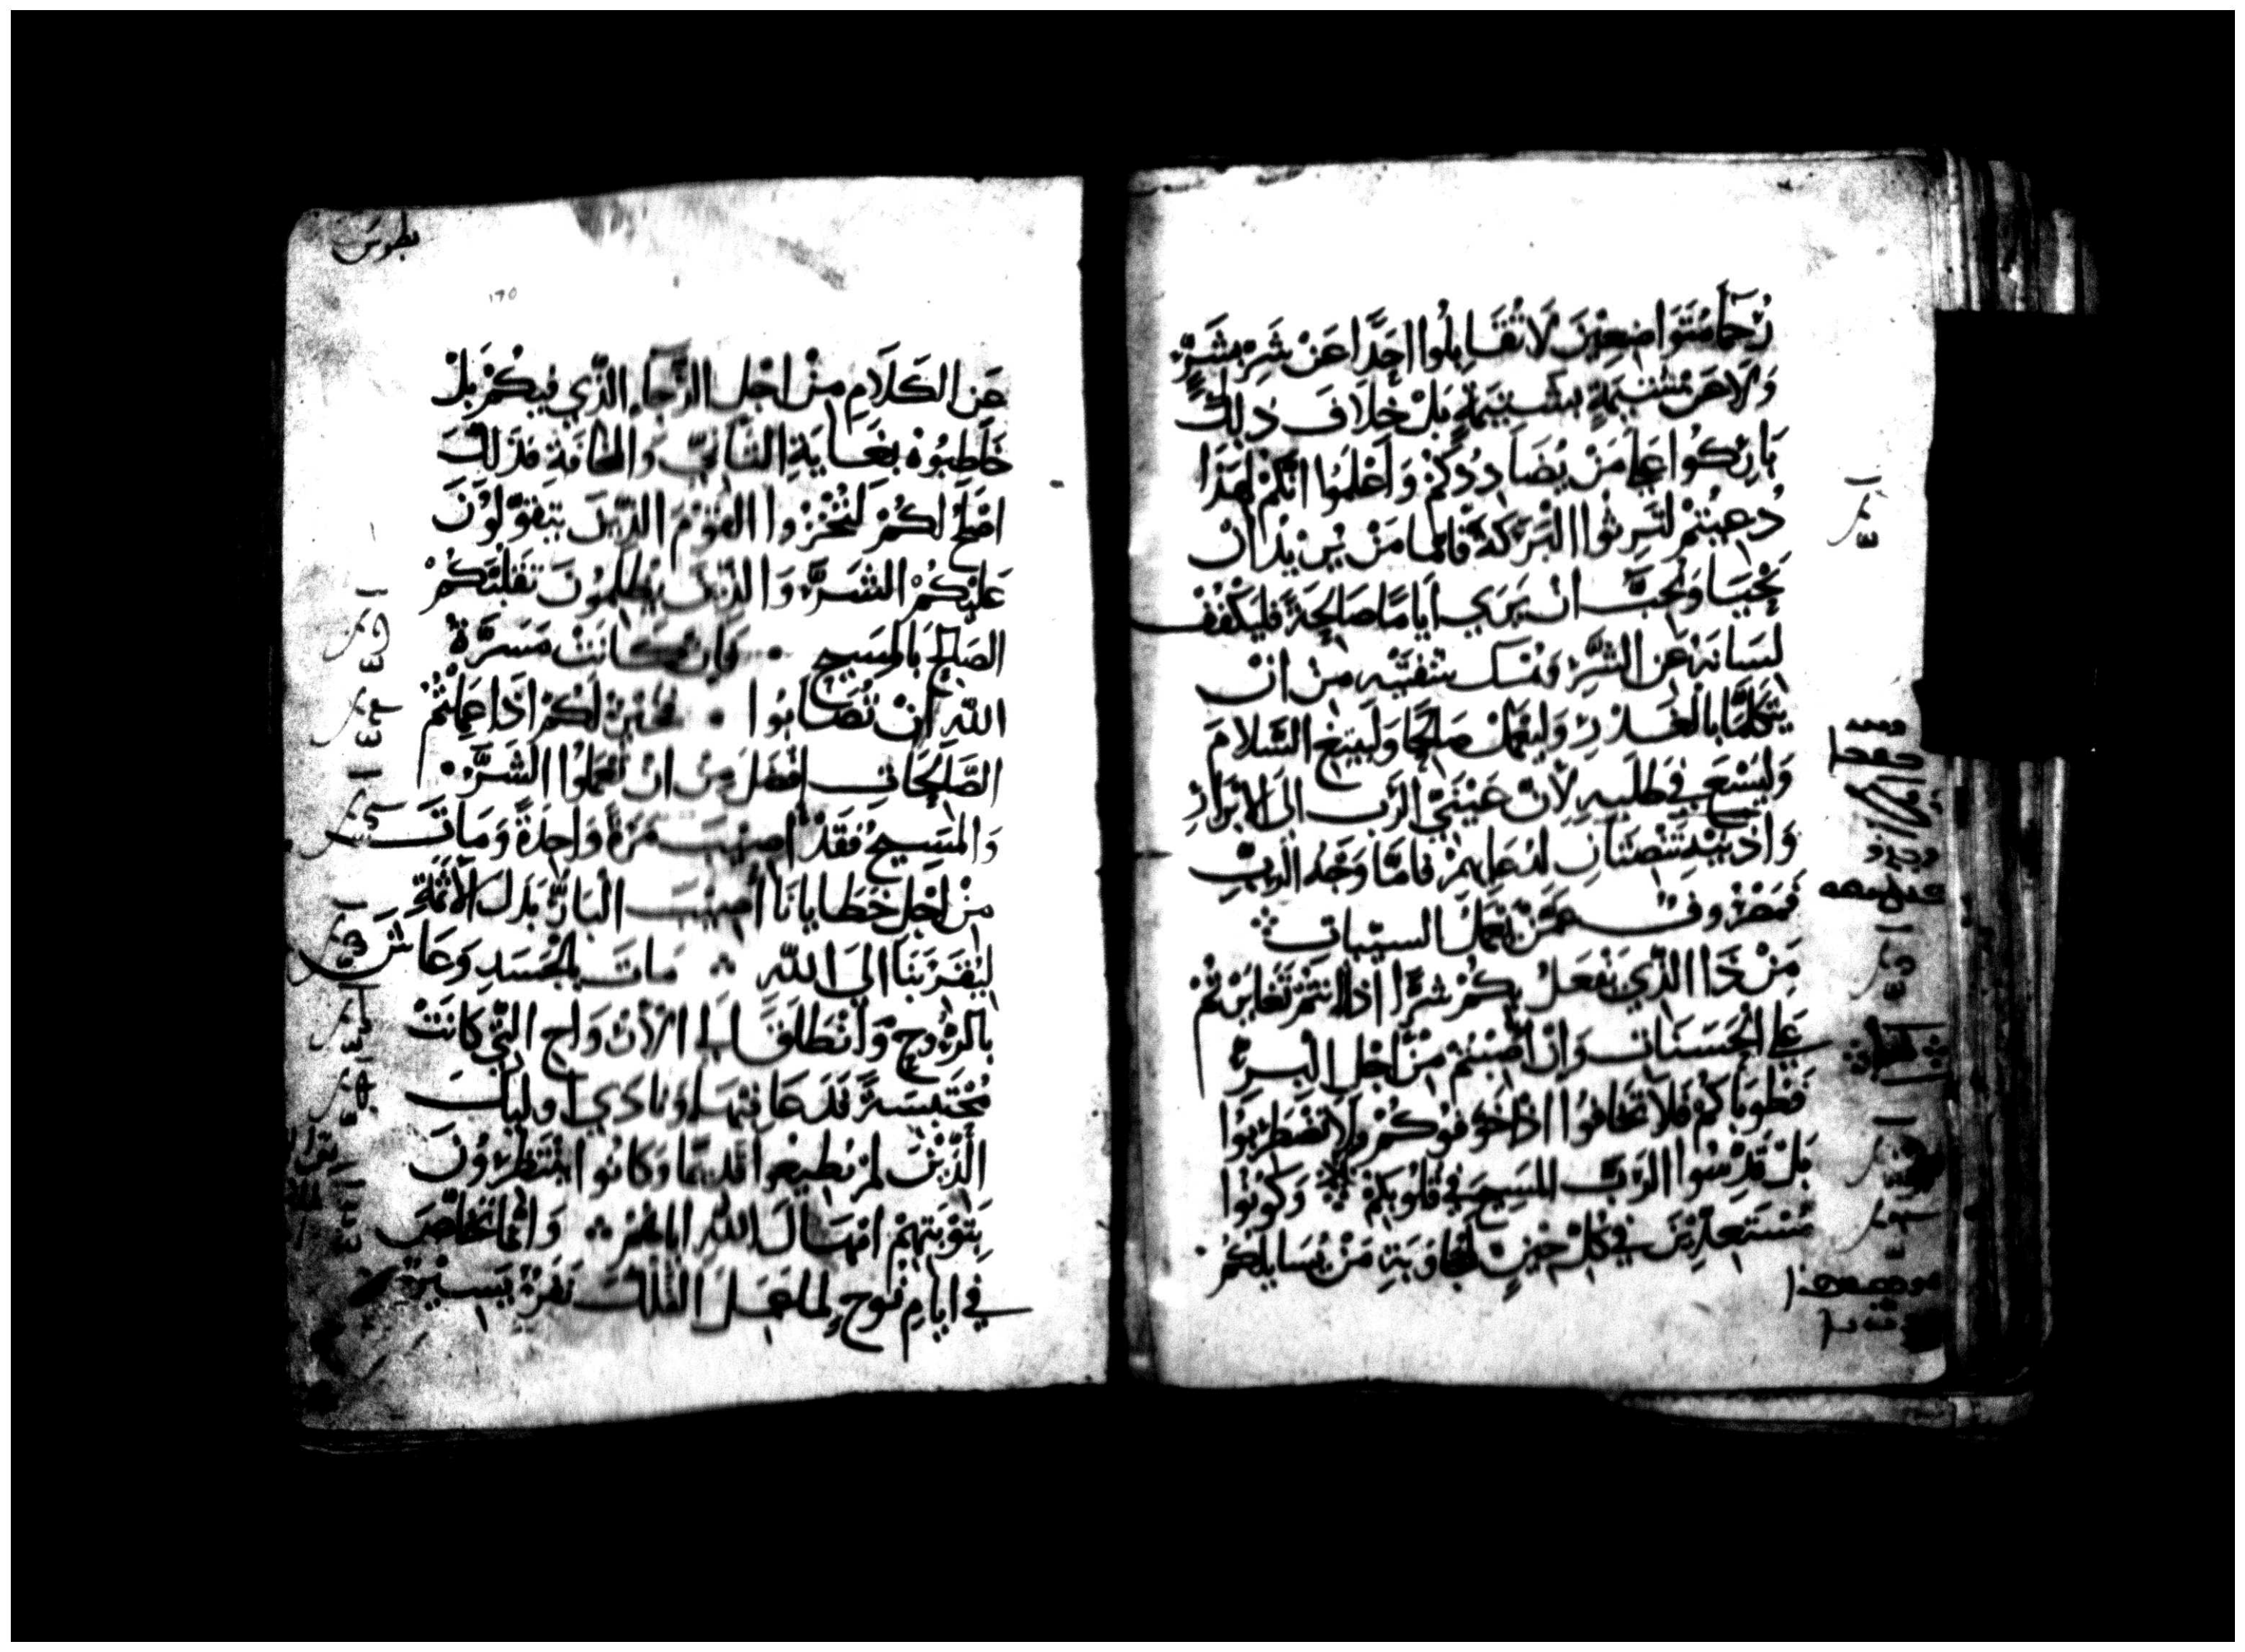 رُحَمَا مُتَوَاضِعِيْنَ لَا تُقَابِلُوا احَدًا عَنْ شَرٍ بشَرٍّ
وَلَا عَنْ شَتيمَةٍ بشَتيمَةٍ بَلْ خِلَافَ ذلِكَ
بَارِكُوا عَلي مَنْ يُضَادِدُكمْ وَاعْلمُوا انَّكمْ لهَذَا
دُعِيتُمْ لتَرِثُوا البَرَكةَ فامَا مَنْ يُرِيْدُ انْ
يَحْيَا وَيُحبَّ انْ يَرَي أيَامًا صَالِحَةً فليَكْفُفْ
لِسَانَهُ عَنِ الشَّرِّ وَيمْسك شَفَتَيْهِ مِنْ انْ
يَتَكلمَا بالغَدْرِ وَليَعْمَلْ صَالحًا وَليَبْتغِ السَّلامَ
وَليَسْعَ في طَلَبهِ لِأنَّ عَيْنَيِّ الرَّب الى الابْرَارِ
وَاذنَيْهِ تَنْصتَانِ لدعَايهمْ فامَّا وَجْهُ الرَبِّ
فَمَصْرُوفٌ عَمَّنْ يَعْمَلُ السيّيات
مَنْ ذَا الذَّي يَفعَلُ بكمْ شرًا اذا انتمْ تَغَايَرْتُمْ
عَلي الحَسَنَات وَانْ اصِبْتمْ مِنْ اجْلِ البِرِّ
فَطوبَاكمْ فلَا تَخَافوا اذْ اخوّفوكُمْ وَلَا تَضْطرِبُوا
بَلْ قَدِّسُوا الرَّبَّ المَسِيحَ في قلُوبكمْ وَكُونُوا
مُسْتَعِدِّيْنَ في كلِ حِينٍ لمجَاوَبَةِ مَنْ يُسَايلكُمْ
بطرس
١٦٥
عَن الكَلَامِ مِنْ اجْلِ الرَّجَاءِ الذَّي فيكُمْ بَلْ
خَاطِبُوهْ بغَايَةِ التَّانّي وَالمخَافَةِ فذَلكَ
اصْلحُ لكُمْ لتُخْزُوا القَوْمَ الذّينَ يَتَقَوّلوُنَ
عَلَيكُمْ الشَرَّ وَالذّينَ يَظلمُونَ تَقَلُّبَكُمْ
الصَالِحَ بَالمَسِيحِ وَانْ كانَتْ مَسَرَّةُ
اللهِ أنْ تُصَابُوا فخَيْرٌ لَكمْ اذَا عَمِلْتُمْ
الصَّالِحَاتِ افْضَل مِنْ انْ تَعْمَلُوا الشَّرَّ
وَالمَسِيحُ فَقَدْ اصِيْبَ مَرَةً وَاحِدَةً وَمَاتَ
مِنْ اجْلِ خَطَايَانَا أصِيْبَ البَارُّ بَدَلَ الأثَمَةِ
ليُقَرِّبَنَا الَي اللهِ مَاتَ بالجَسَدِ وَعَاشَ
بالرُّوحِ وَانْطَلقَ الي الأرْوَاحِ التَّي كانَتْ
مُحْتَبسَةً قَد عَايَنَهَا وَنَادَي اوليكَ
الَّذِّيْنَ لمْ يُطيعُوا قَدِيمًا وَكانُوا يَنْتَظِرُونَ
بَتَوْبَتهِمْ امْهَالَ اللهِ ايَاهُمْ وَانمَا تَخَاصَّ
في ايَامِ نُوحٍ لمَا عَمِلَ الفُلْكَ نَفَرٌ يَسيْرٌ